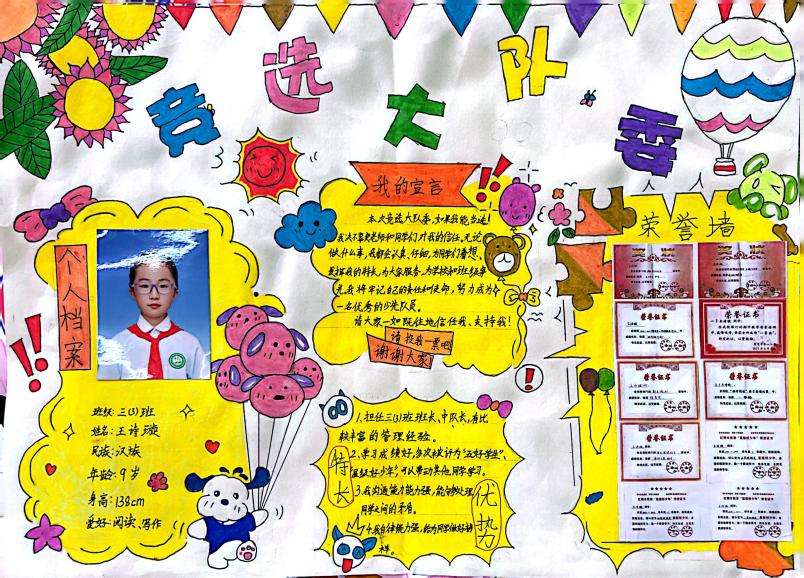 竞选大队委
个人档案
班级:三(3)班
姓名:王诗
民族:汉族
年龄:9岁
身高:138cm
爱好:阅读、写作
我的宣言
本次竞选大队委,如果我能当选!
我决不辜负老师和同学们对我的信任,无论
做什么事,我都会认真、仔细,为同学们着想,
发挥我的特长,为大家服务,为学校和班级争
光,我将牢记自己的责任和使命,努力成为
一名优秀的少先队员。
请大家一如既往地信任我、支持我!
请投我一票吧
谢谢大家
特长
优势
1.担任三(3)班班长、中队长,有比
较丰富的管理经验。
2.学习成绩好,多次被评为“五好学生”、
好少年”,可以带动其他同学学习。
3.我沟通能力能力强,能够处理
同学之间的矛盾。
4.我自律能力强,给同学做好榜
样。
荣誉墙
荣誉证书
荣誉证书
荣誉证书
荣誉证书
荣誉证书